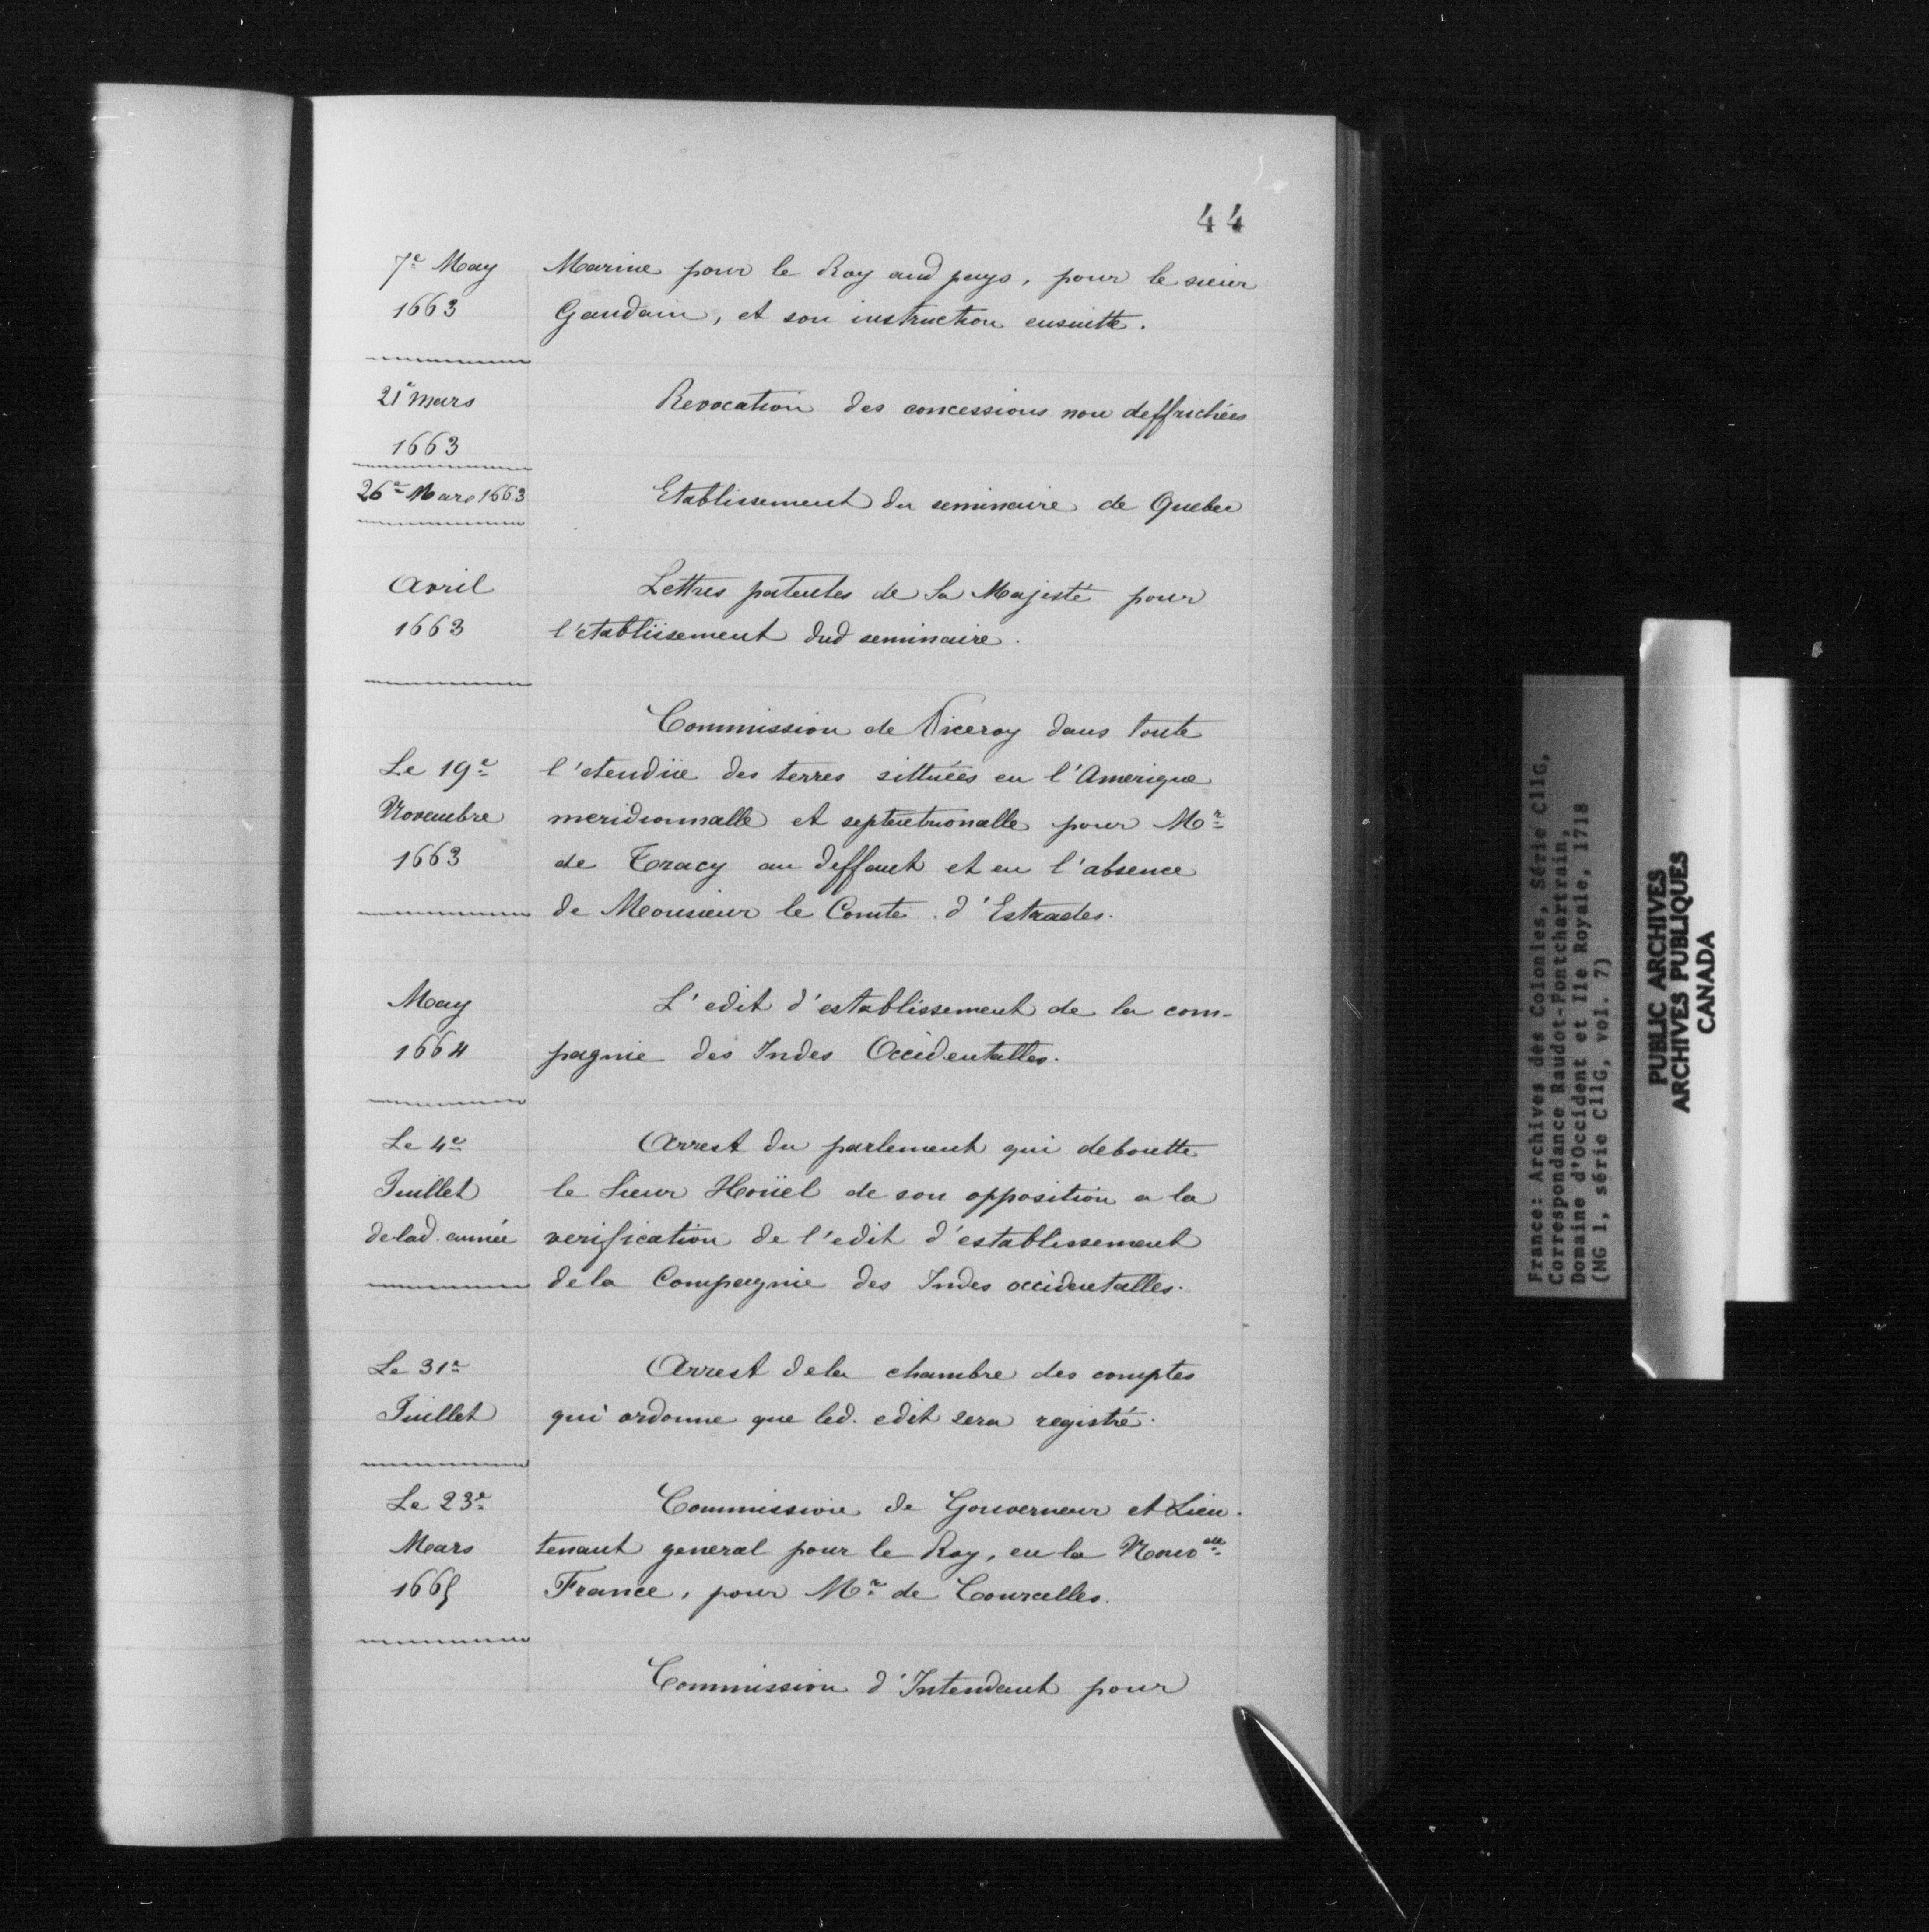 44
7e May
1663
Marine pour le Roy aud pays, pour le sieur
Gaudain, et son instruction ensuitte.
21e mars
1663
Revocation des concessions non deffrichées
26e Mars 1663
Etablissement du seminaire de Quebec
Avril
1663
Lettres patentes de Sa Majesté pour
l'etablissement dud seminaire.
Le 19e
Novembre
1663
Commission de Viceroy dans toute
l'etendüe des terres sittuées en l'Amerique
meridionnalle et septentrionalle pour Mr
de Tracy au deffaut et en l'absence
de Monsieur le Comte d'Estrades.
May
1664
L'edit d'establissement de la com-
pagnie des Indes Occidentalles.
Le 4e
Juillet
delad. année
Arrest du parlement qui deboutte
le Sieur Hoüel de son opposition a la
verification de l'edit d'establissement
de la Compagnie des Indes occidentalles.
Le 31e
Juillet
Arrest dela chambre des comptes
qui ordonne que led. edit sera registré.
Le 23e
Mars
1665
Commission de Gouverneur et Lieu-
tenant general pour le Roy, en la Nouvelle
France, pour Mr de Courcelles.
Commission d'Intendant pour
France: Archives des Colonies, Série C11G,
Correspondance Raudot-Pontchartrain,
Domaine d'Occident et Ile Royale, 1718
(MG 1, série C11G, vol. 7)
PUBLIC ARCHIVES
ARCHIVES PUBLIQUES
CANADA